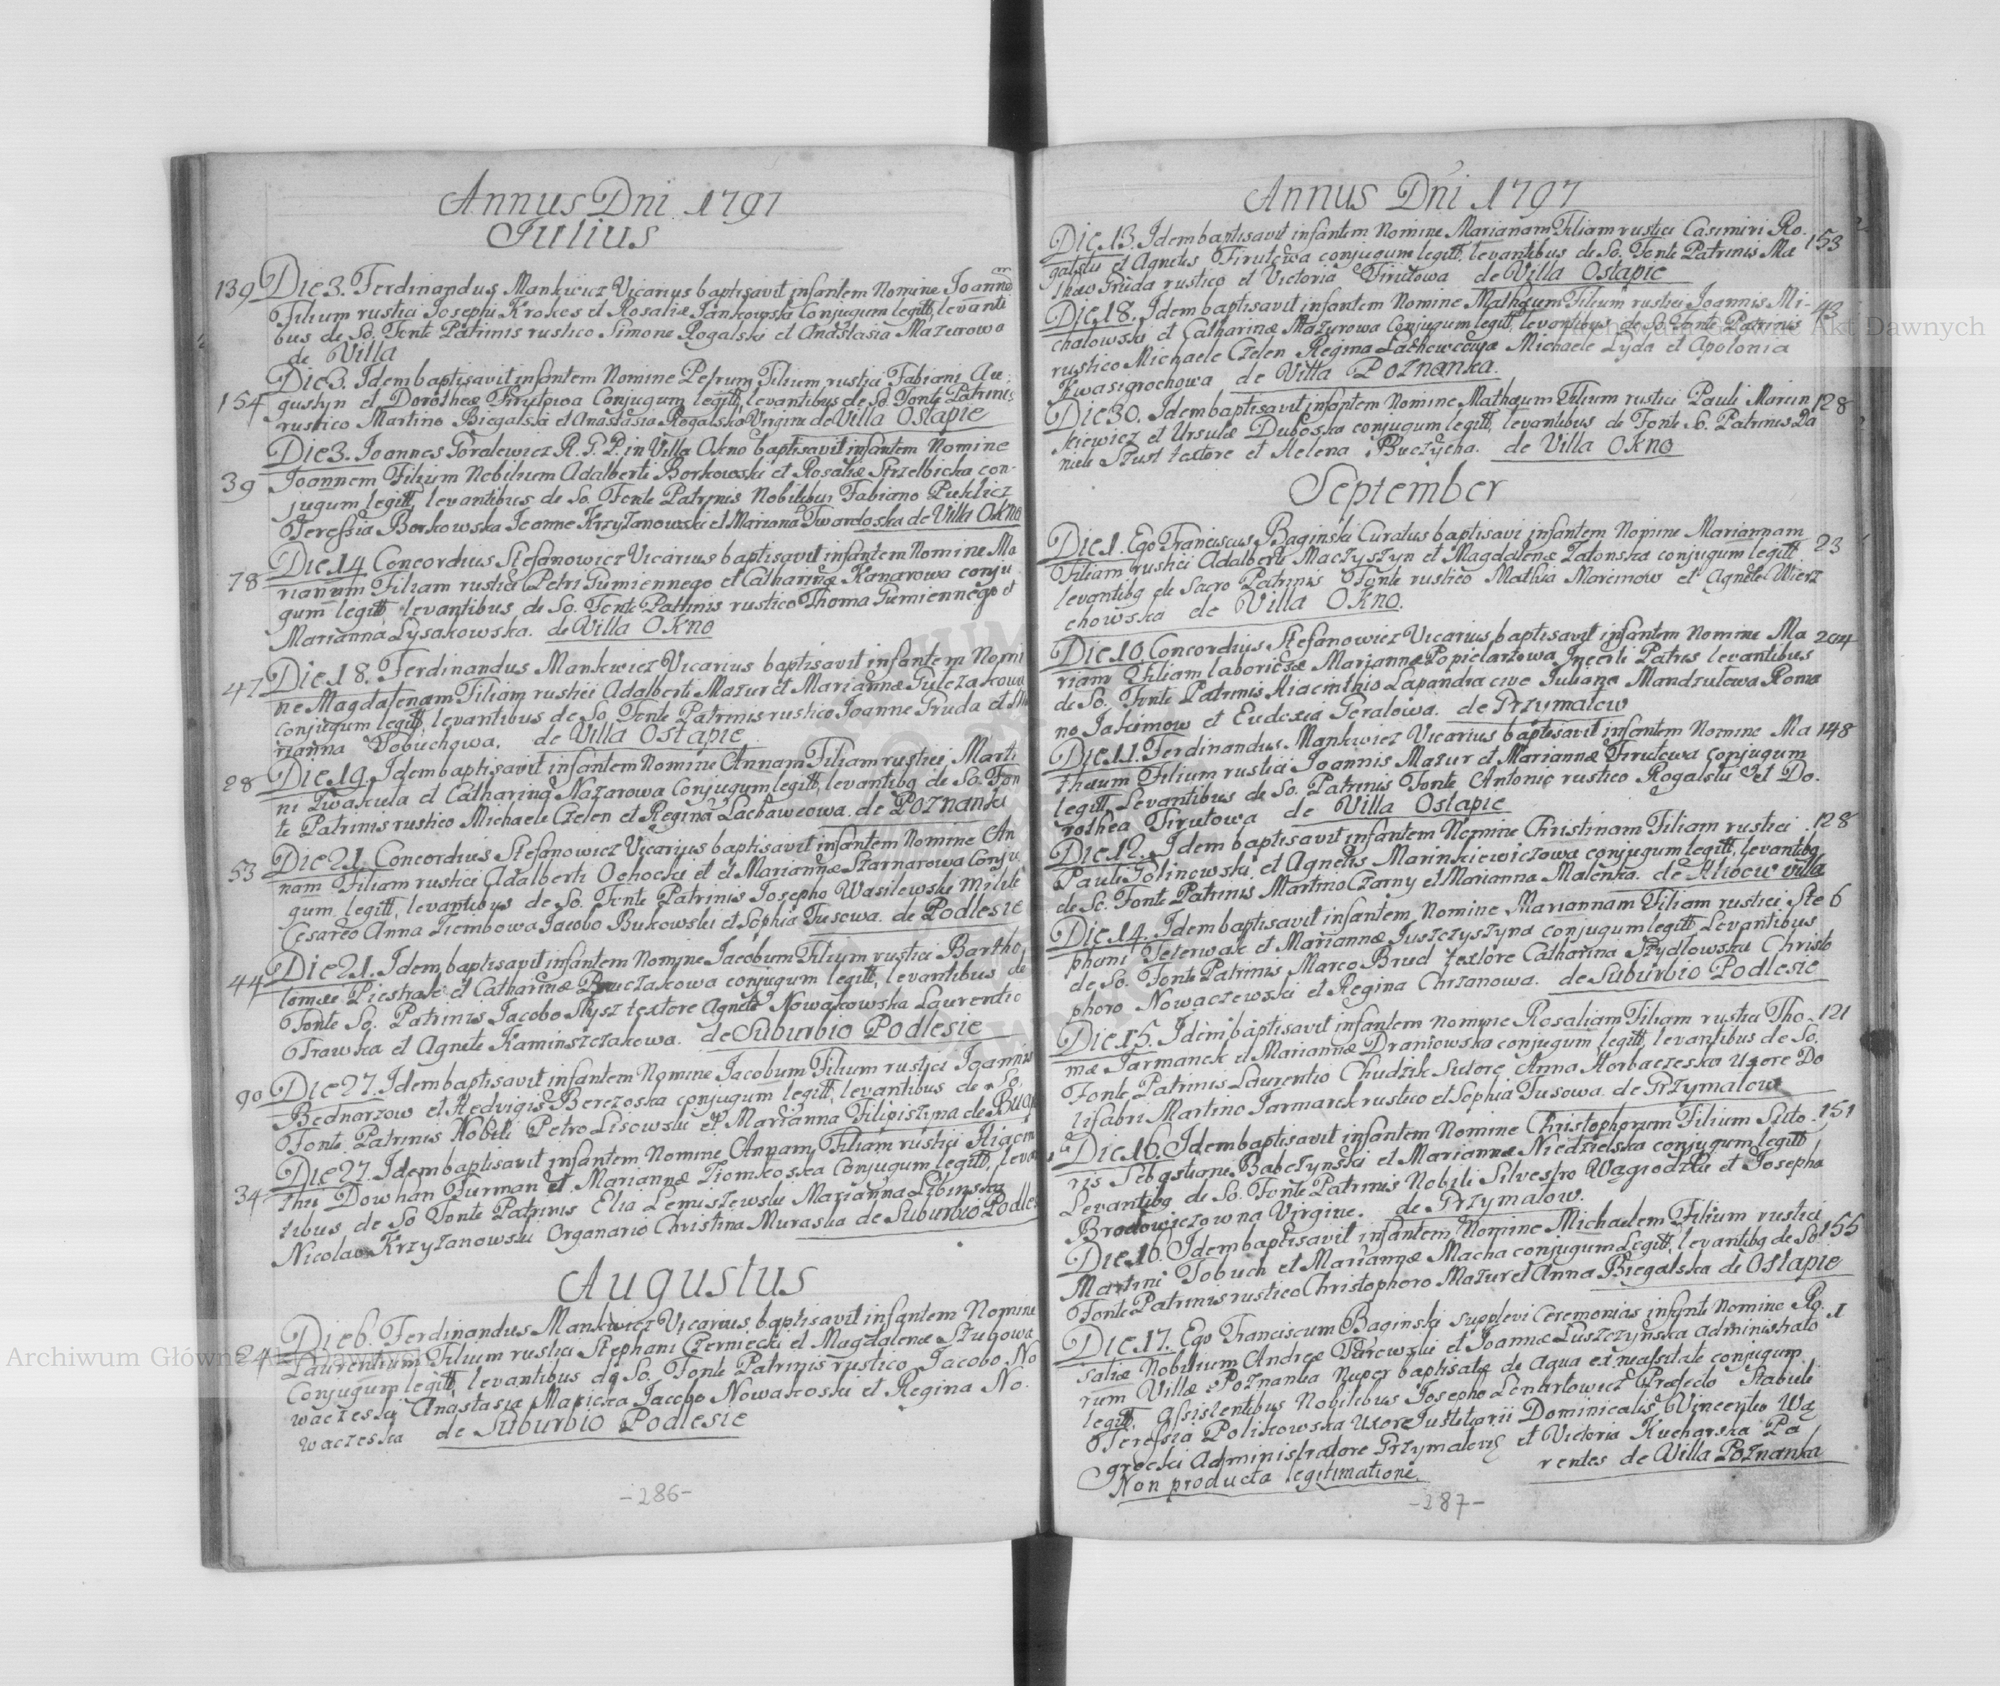 Annus Dni 1797
Julius
139 Die 3. Ferdinandus Mankwicz Vicarius baptisavit infantem Nomine Joannem
Filium rustici Josephi Krokos et Rosaliæ Jankowska Conjugum legitt, levanti
bus de So. Fonte Patrinis rustico Simone Rogalski et Anastasia Mazurowa
de Villa
Die 3. Idem baptisavit infantem Nomine Petrum Filium rustici Fabiani Au-
154 gustyn et Dorotheæ Firutowa Conjugum legitt, levantibus de So. Fonte Patrinis
rustico Martino Biegalski et Anastasia Rogalska Virgine de Villa Ostapie
Die 3. Joannes Goralewicz R. G. P. in Villa Okno baptisavit infantem Nomine
39 Joannem Filium Nobilium Adalberti Borkowski et Rosaliæ Strzelbicka con-
jugum legitt, levantibus de So. Fonte Patrinis Nobilibus Fabiano Puklicz
Teressia Borkowska Joanne Krzyzanowski et Mariana Twardoska de Villa Okno
Die 14 Concordius Stefanowicz Vicarius baptisavit infantem Nomine Ma
78 riannam Filiam rustici Petri Gumiennego et Catharinæ Kanarowa conju
gum legitt, levantibus de So. Fonte Patrinis rustico Thoma Gumiennego et
Marianna Lysakowska. de Villa Okno
Die 18. Ferdinandus Mankwicz Vicarius baptisavit infantem Nomi
47 ne Magdalenam Filiam rustici Adalberti Mazur et Mariannæ Gulczakowa
conjugum legitt, levantibus de So. Fonte Patrinis rustico Joanne Gruda et Ma
rianna Tobuchowa. de Villa Ostapie
28 Die 19. Idem baptisavit infantem Nomine Annam Filiam rustici Marti
ni Kwakula et Catharinæ Nazarowa Conjugum legitt, levantibq de So. Fon
te Patrinis rustico Michaele Czelen et Regina Lachawcowa. de Poznanka
53 Die 21. Concordius Stefanowicz Vicarius baptisavit infantem Nomine An
nam Filiam rustici Adalberti Ochocki et et Mariannæ Starnarowa Conju
gum legitt, levantibus de So. Fonte Patrinis Josepho Wasilewski Milite
Cesareo Anna Ziembowa Jacobo Bukowski et Sophia Tusowa. de Podlesie
Die 21. Idem baptisavit infantem Nomine Jacobum Filium rustici Bartho
44 lomæi Piestrak et Catharinæ Bruczakowa conjugum legitt, levantibus de
Fonte So. Patrinis Jacobo Rysz textore Agnete Nowakowska Laurentio
Trawka et Agnete Kaminszczakowa. de Suburbio Podlesie
90 Die 27. Idem baptisavit infantem Nomine Jacobum Filium rustici Joannis
Bednarzow et Hedvigis Berezoska conjugum legitt, levantibus de So.
Fonte Patrinis Nobili Petro Lisowski et Marianna Filipiszyna de
Die 27. Idem baptisavit infantem Nomine Annam Filiam rustici Hiacin
34 thi Dowhan Furman et Mariannæ Ziomkoska Conjugum legitt, levan
tibus de So Fonte Patrinis Elia Lemiszewski Marianna Libinska
Nicolao Krzyzanowski Organario Christina Muraska de Suburbio Podles
Augustus
Die 6. Ferdinandus Mankwicz Vicarius baptisavit infantem Nomine
24 Laurentium Filium rustici Stephani Czerniecki et Magdalenæ Stubowa
Conjugum legitt, levantibus de So. Fonte Patrinis rustico Jacobo No
waczeski Anastasia Maricka Jacobo Nowakoski et Regina No.
waczeska de Suburbio Podlesie
-286-
Annus Dni 1797
Die 13. Idem baptisavit infantem Nomine Mariannam Filiam rustici Casimiri Ro- 153
galski et Agnetis Firutowa conjugum legitt, levantibus de So. Fonte Patrinis Ma
thæo Gruda rustico et Victoria Firutowa de Villa Ostapie
Die 18. Idem baptisavit infantem Nomine Mathæum Filium rustici Joannis Mi- 43
chalowski et Catharinæ Mazurowa Conjugum legitt, levantibus de So. Fonte Patrinis
rustico Michaele Czelen Regina Lachowcowa Michaele Lyda et Apolonia
Kwasigrochowa de Villa Poznanka.
Die 30. Idem baptisavit infantem Nomine Mathæum Filium rustici Pauli Marcin 128
kiewicz et Ursulæ Duboska conjugum legitt, levantibus de Fonte S. Patrinis Da
niele Szust textore et Helena Buczycha. de Villa Okno
September
Die 1. Ego Franciscus Baginski Curatus baptisavi infantem Nomine Mariannam 23
Filiam rustici Adalberti Maczyszyn et Magdalenæ Zalonska conjugum legitt
levantibq de Sacro Patrinis Fonte rustico Mathia Marcinow et Agnete Wierz
chowska de Villa Okno.
Die 10. Concordius Stefanowicz Vicarius baptisavit infantem Nomine Ma 204
riam Filiam laboriosæ Mariannæ Popielarzowa Incerti Patris levantibus
de So. Fonte Patrinis Hiacinthio Lapandra cive Juliana Mandzulewa Roma
no Jakimow et Eudoxia Geralowa. de Przymalow
Die 11. Ferdinandus Mankwicz Vicarius baptisavit infantem Nomine Ma 148
thæum Filium rustici Joannis Mazur et Mariannæ Firutowa conjugum
legitt, Levantibus de So. Patrinis Fonte Antonio rustico Rogalski et Do.
rothea Firutowa de Villa Ostapie
Die 12. Idem baptisavit infantem Nomine Christinam Filiam rustici 128
Pauli Golinowski et Agnetis Marinkiewiczowa conjugum legitt, levantibq
de So. Fonte Patrinis Martino Czarny et Marianna Malenka. de villa
Die 14. Idem baptisavit infantem Nomine Mariannam Filiam rustici Ste 6
phani Teterwak et Mariannæ Juszczyszyna conjugum legitt Levantibus
de So. Fonte Patrinis Marco Brud textore Catharina Szydlowska Christo
phoro Nowaczewski et Regina Chrzanowa. de Suburbio Podlesie
Die 15. Idem baptisavit infantem Nomine Rosaliam Filiam rustici Tho- 121
mæ Jarmanek et Mariannæ Draniowska conjugum legitt, levantibus de So.
Fonte Patrinis Laurentio Chudzik Sutore Anna Horbaczeska Uxore Do
lifabri Martino Jarmarek rustico et Sophia Tusowa. de Przymalow
Die 16. Idem baptisavit infantem Nomine Christophorum Filium Suto- 151
ris Sebastiani Babczynski et Mariannæ Niedzielska conjugum legitt,
Levantibq de So. Fonte Patrinis Nobili Silvestro Wagrodzki et Josepha
Brodowiczowna Virgine. de Przymalow.
Die 16. Idem baptisavit infantem Nomine Michaelem Filium rustici
Martini Tobuch et Mariannæ Macha conjugum Legitt, levantibq de So 155
Fonte Patrinis rustico Christophoro Mazur et Anna Biegalska de Ostapie
Die 17. Ego Franciscum Baginski supplevi Ceremonias infante Nomine Ro. 1
saliæ Nobilium Andreæ Turowski et Joannæ Luszczyńska Administrato
rum Villæ Poznanka Nuper baptisatæ de Aqua ex necessitate conjugum
legitt. Assistentibus Nobilibus Josepho Lenartowicz Præfecto Stabuli
Teressia Polikowska Uxore Justitiarii Dominicalis Vincentio Wa
grocki Administratore Przymaloviq et Victoria Kucharska Pa
rentes de Villa Poznanka
Non producta legitimatione.
-287-
Archiwum Główne Akt Dawnych